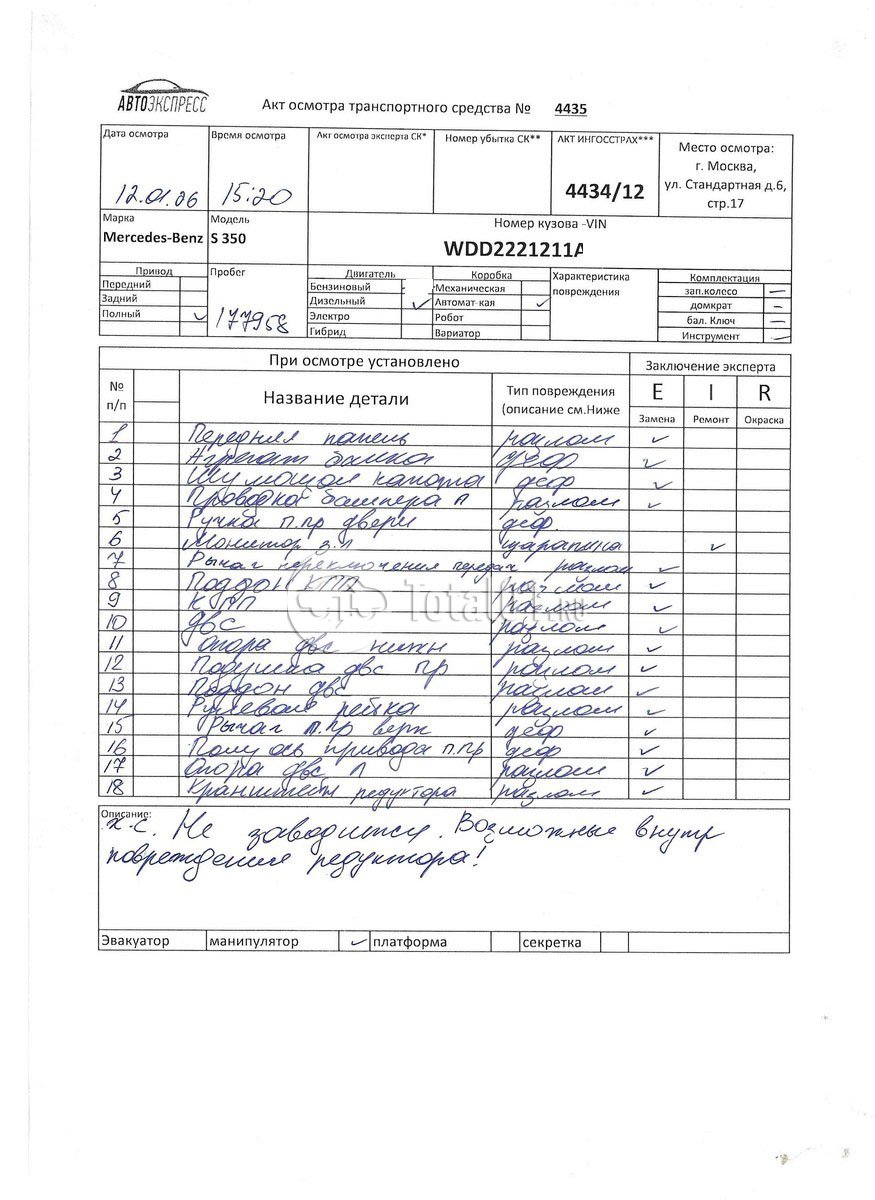 АВТОЭКСПРЕСС
Акт осмотра транспортного средства № 4435
Дата осмотра Время осмотра Акт осмотра эксперта СК* Номер убытка СК** АКТ ИНГОССТРАХ*** Место осмотра:
г. Москва,
12.01.26 15:20 4434/12 ул. Стандартная д.6,
стр.17
Марка Модель Номер кузова -VIN
Mercedes-Benz S 350 WDD2221211A
Привод Пробег Двигатель Коробка Характеристика повреждения Комплектация
Передний Бензиновый Механическая зап.колесо —
Задний Дизельный ✓ Автомат-кая ✓ домкрат –
Полный ✓ 177958 Электро Робот бал. Ключ —
Гибрид Вариатор Инструмент —
При осмотре установлено Заключение эксперта
№ п/п Название детали Тип повреждения (описание см.Ниже E I R
Замена Ремонт Окраска
1 Передняя панель разлом ✓
2 Агрегат бачка деф ✓
3 Шумоизол капота деф ✓
4 Проводка бампера п разлом ✓
5 Ручка п.пр двери деф
6 Монитор з.л царапина ✓
7 Рычаг переключения передач разлом ✓
8 Поддон КПП разлом ✓
9 КПП разлом ✓
10 ДВС разлом ✓
11 опора двс нижн разлом ✓
12 Подушка двс пр разлом ✓
13 Поддон двс разлом ✓
14 Рулевая рейка разлом ✓
15 Рычаг п.пр верх деф ✓
16 Полуось привода п.пр деф ✓
17 Опора двс л разлом ✓
18 Кранштейн редуктора разлом ✓
TotalArt.RU
Описание:
х-с. Не заводится. Возможные внутр
повреждения редуктора!
Эвакуатор манипулятор ✓ платформа секретка